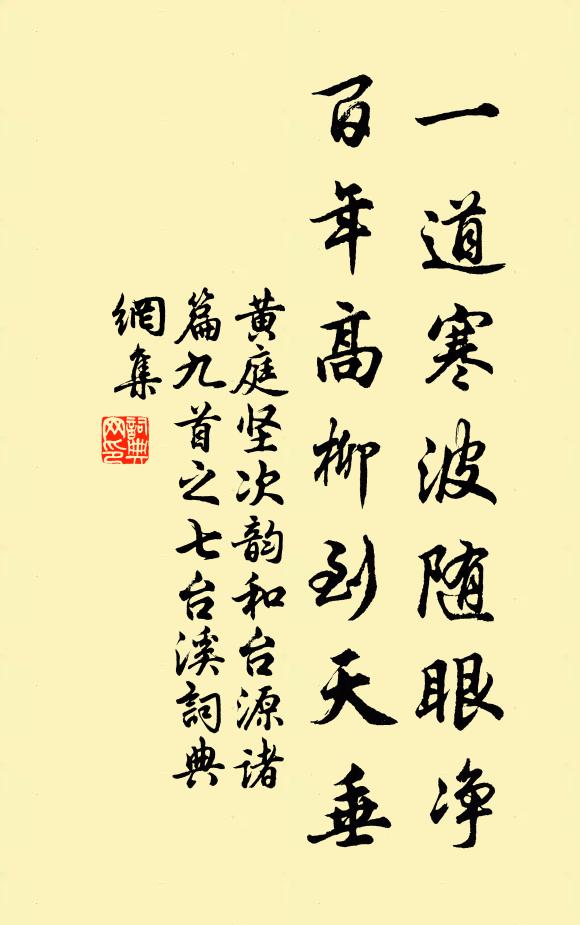 一道寒波随眼净
百年高柳到天垂
黄庭坚次韵和台源诸
篇九首之七台溪詞典
網集
詞典
网印